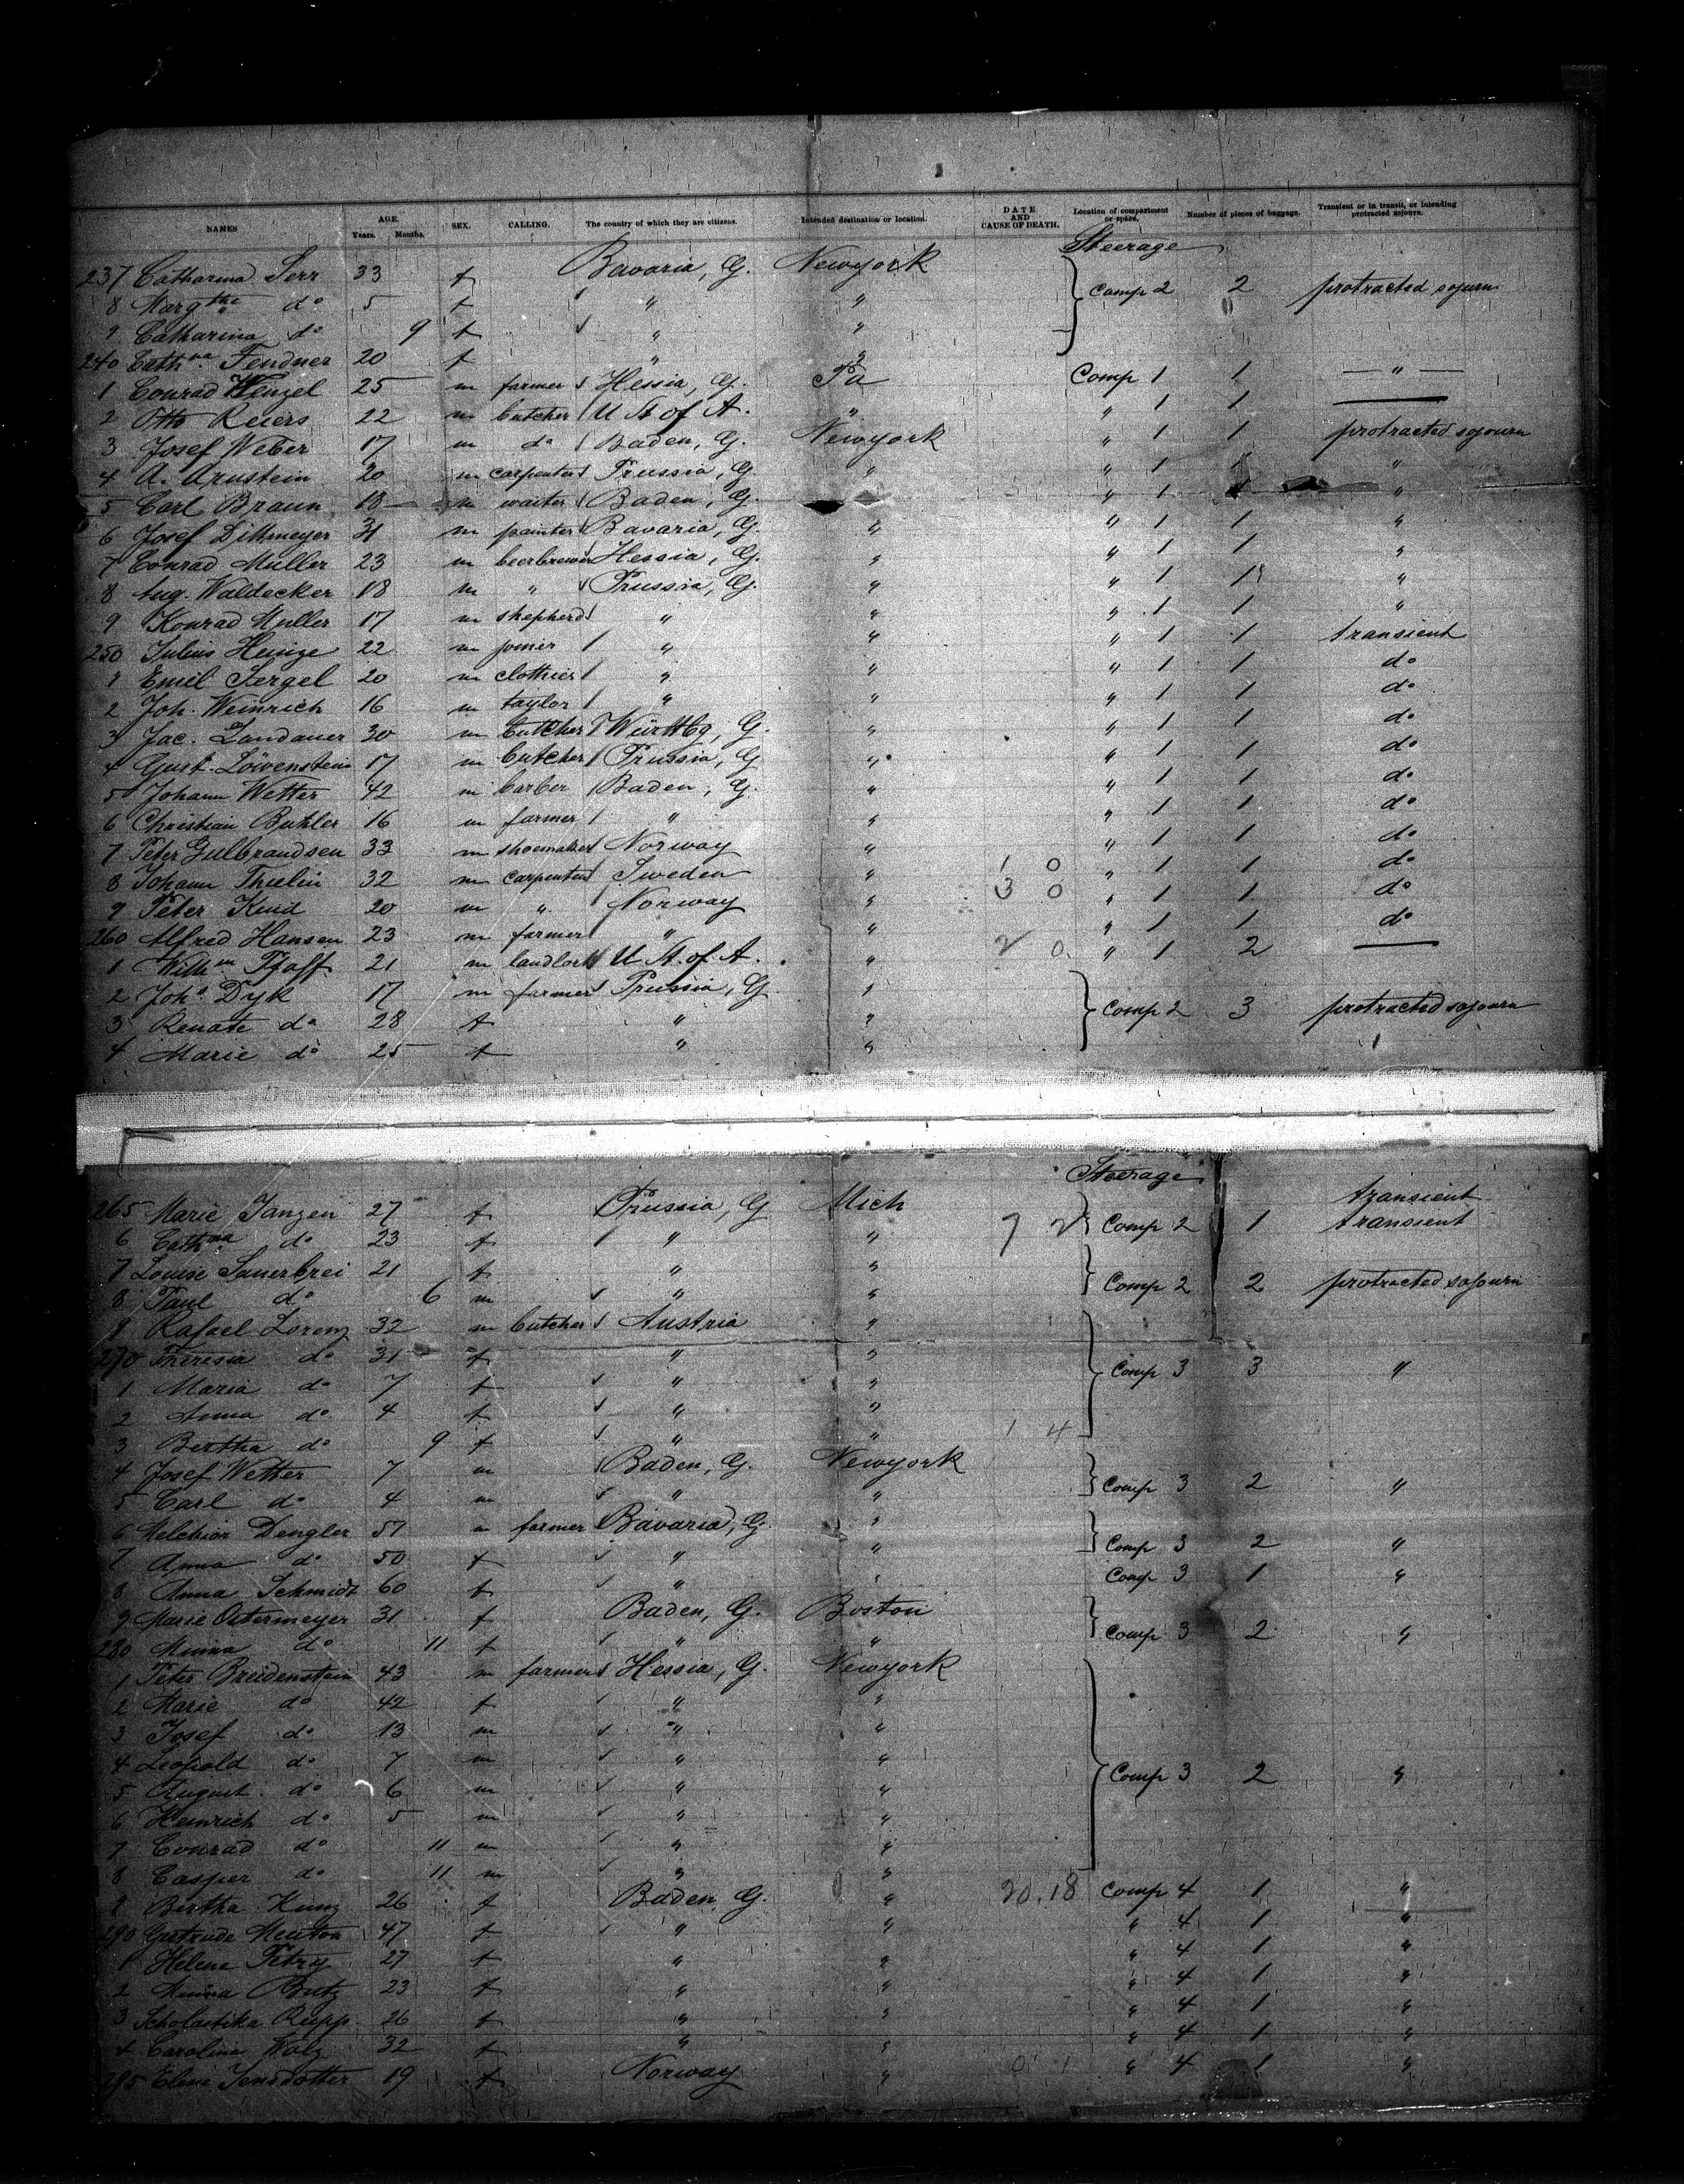 NAMES AGE. Years. Months. SEX. CALLING. The country of which they are citizens. Intended destination or location. DATE AND CAUSE OF DEATH. Location of compartment or space. Number of pieces of baggage. Transient or in transit, or intending protracted sojourn.
Steerage
237 Catharina Serr 33 f Bavaria, G. Newyork
8 Margtha do 5 f " " Comp 2 2 protracted sojourn
9 Catharina do 9 f " "
240 Cathna Fendner 20 f " "
1 Conrad Wenzel 25 m farmer Hessia, G. Pa Comp 1 1 — " —
2 Otto Reiers 22 m butcher U St of A. " " 1 1 —
3 Josef Weber 17 m do Baden, G. Newyork " 1 1 protracted sojourn
4 A. Arnstein 20 m carpenter Prussia, G. " " 1 1 "
5 Carl Braun 18 m waiter Baden, G. " 1 "
6 Josef Dithmeyer 31 m painter Bavaria, G. " " 1 1 "
7 Conrad Müller 23 m beerbrewer Hessia, G. " " 1 1 "
8 Aug. Waldecker 18 m " Prussia, G. " " 1 1 "
9 Konrad Müller 17 m shepherd " " " 1 1 "
250 Julius Heinze 22 m joiner " " " 1 1 transient
1 Emil Sergel 20 m clothier " " " 1 1 do
2 Joh. Weinrich 16 m taylor " " " 1 1 do
3 Jac. Landauer 30 m butcher Württbg, G. " " 1 1 do
4 Gust. Löwenstein 17 m butcher Prussia, G " " 1 1 do
5 Johann Wetter 42 m barber Baden, G. " " 1 1 do
6 Christian Buhler 16 m farmer " " " 1 1 do
7 Peter Gulbrandsen 33 m shoemaker Norway " " 1 1 do
8 Johann Thulin 32 m carpenter Sweden " 1 0 " 1 1 do
9 Peter Kind 20 m " Norway " 3 0 " 1 1 do
260 Alfred Hansen 23 m farmer " " " 1 1 do
1 Willm Pfaff 21 m landlord U St. of A. " 2 0 " 1 2 —
2 Joh. Dyk 17 m farmer Prussia, G "
3 Renate do 28 f " " Comp 2 3 protracted sojourn
4 Marie do 25 f " "
Steerage
265 Marie Janzen 27 f Prussia, G Mich transient
6 Cathna do 23 f " " 7 2 Comp 2 1 transient
7 Louise Sauerbrei 21 f " "
8 Paul do 6 m " " Comp 2 2 protracted sojourn
9 Rafael Lorenz 32 m butcher Austria "
270 Theresia do 31 f " "
1 Maria do 7 f " " Comp 3 3 "
2 Anna do 4 f " "
3 Bertha do 9 f " " 1 4
4 Josef Wetter 7 m Baden, G. Newyork
5 Carl do 4 m " " Comp 3 2 "
6 Melchior Dengler 57 m farmer Bavaria, G. "
7 Anna do 50 f " " Comp 3 2 "
8 Anna Schmidt 60 f " " Comp 3 1 "
9 Marie Ostermeyer 31 f Baden, G. Boston
280 Minna do 11 f " " Comp 3 2 "
1 Peter Breidenstein 43 m farmer Hessia, G. Newyork
2 Marie do 42 f " "
3 Josef do 13 m " "
4 Leopold do 7 m " "
5 August do 6 m " " Comp 3 2 "
6 Heinrich do 5 m " "
7 Conrad do 11 m " "
8 Casper do 11 m " "
9 Bertha Kunz 26 f Baden, G. " 20.18 Comp 4 1 "
290 Gertrude Menton 47 f " " " 4 1 "
1 Helene Petry 27 f " " " 4 1 "
2 Minna Butz 23 f " " " 4 1 "
3 Scholastika Rupp. 26 f " " " 4 1 "
4 Carolina Walz 32 f " " " 4 1 "
295 Eline Jensdotter 19 f Norway " 0 1 " 4 1 "